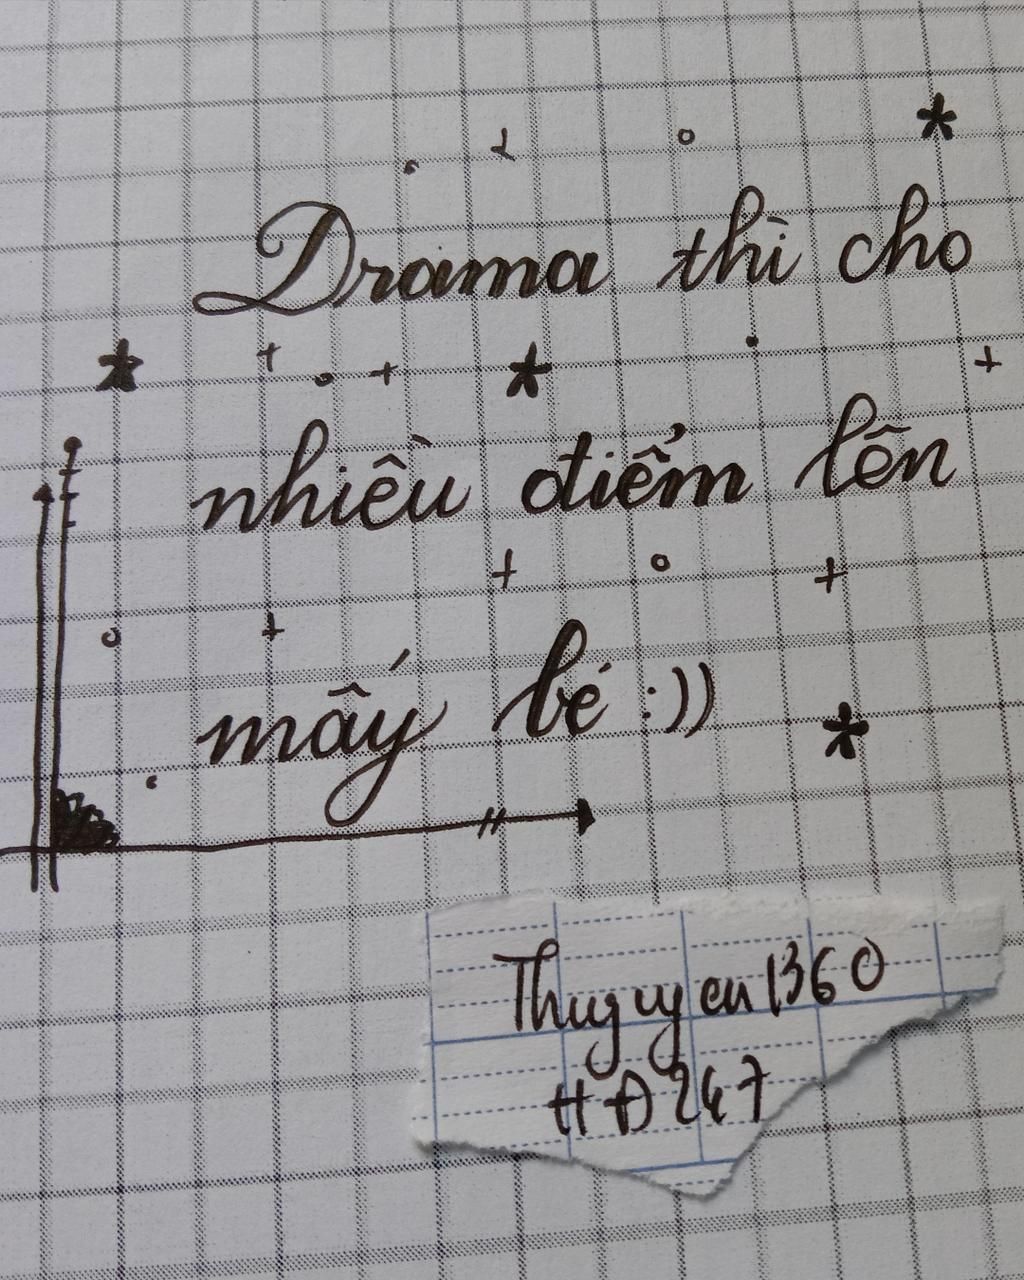 Drama thì cho
nhiều điểm lên
mấy bé :))
Thuyuyen1360
HĐ247